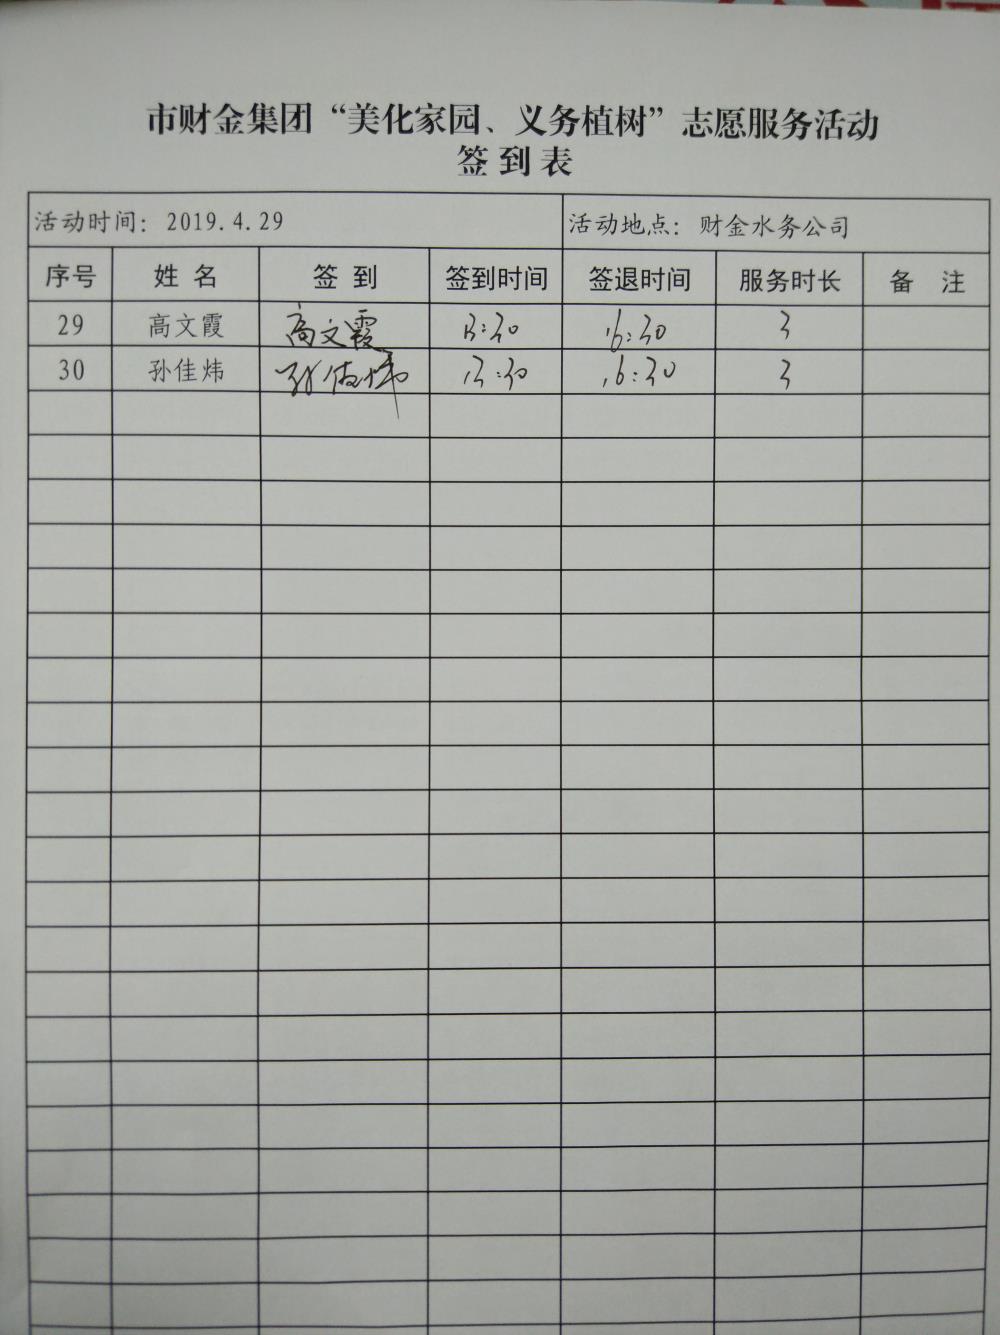 市财金集团“美化家园、义务植树”志愿服务活动
签到表
活动时间：2019.4.29 活动地点：财金水务公司
序号 姓名 签到 签到时间 签退时间 服务时长 备注
29 高文霞 高文霞 13:30 16:30 3
30 孙佳炜 孙佳炜 13:30 16:30 3